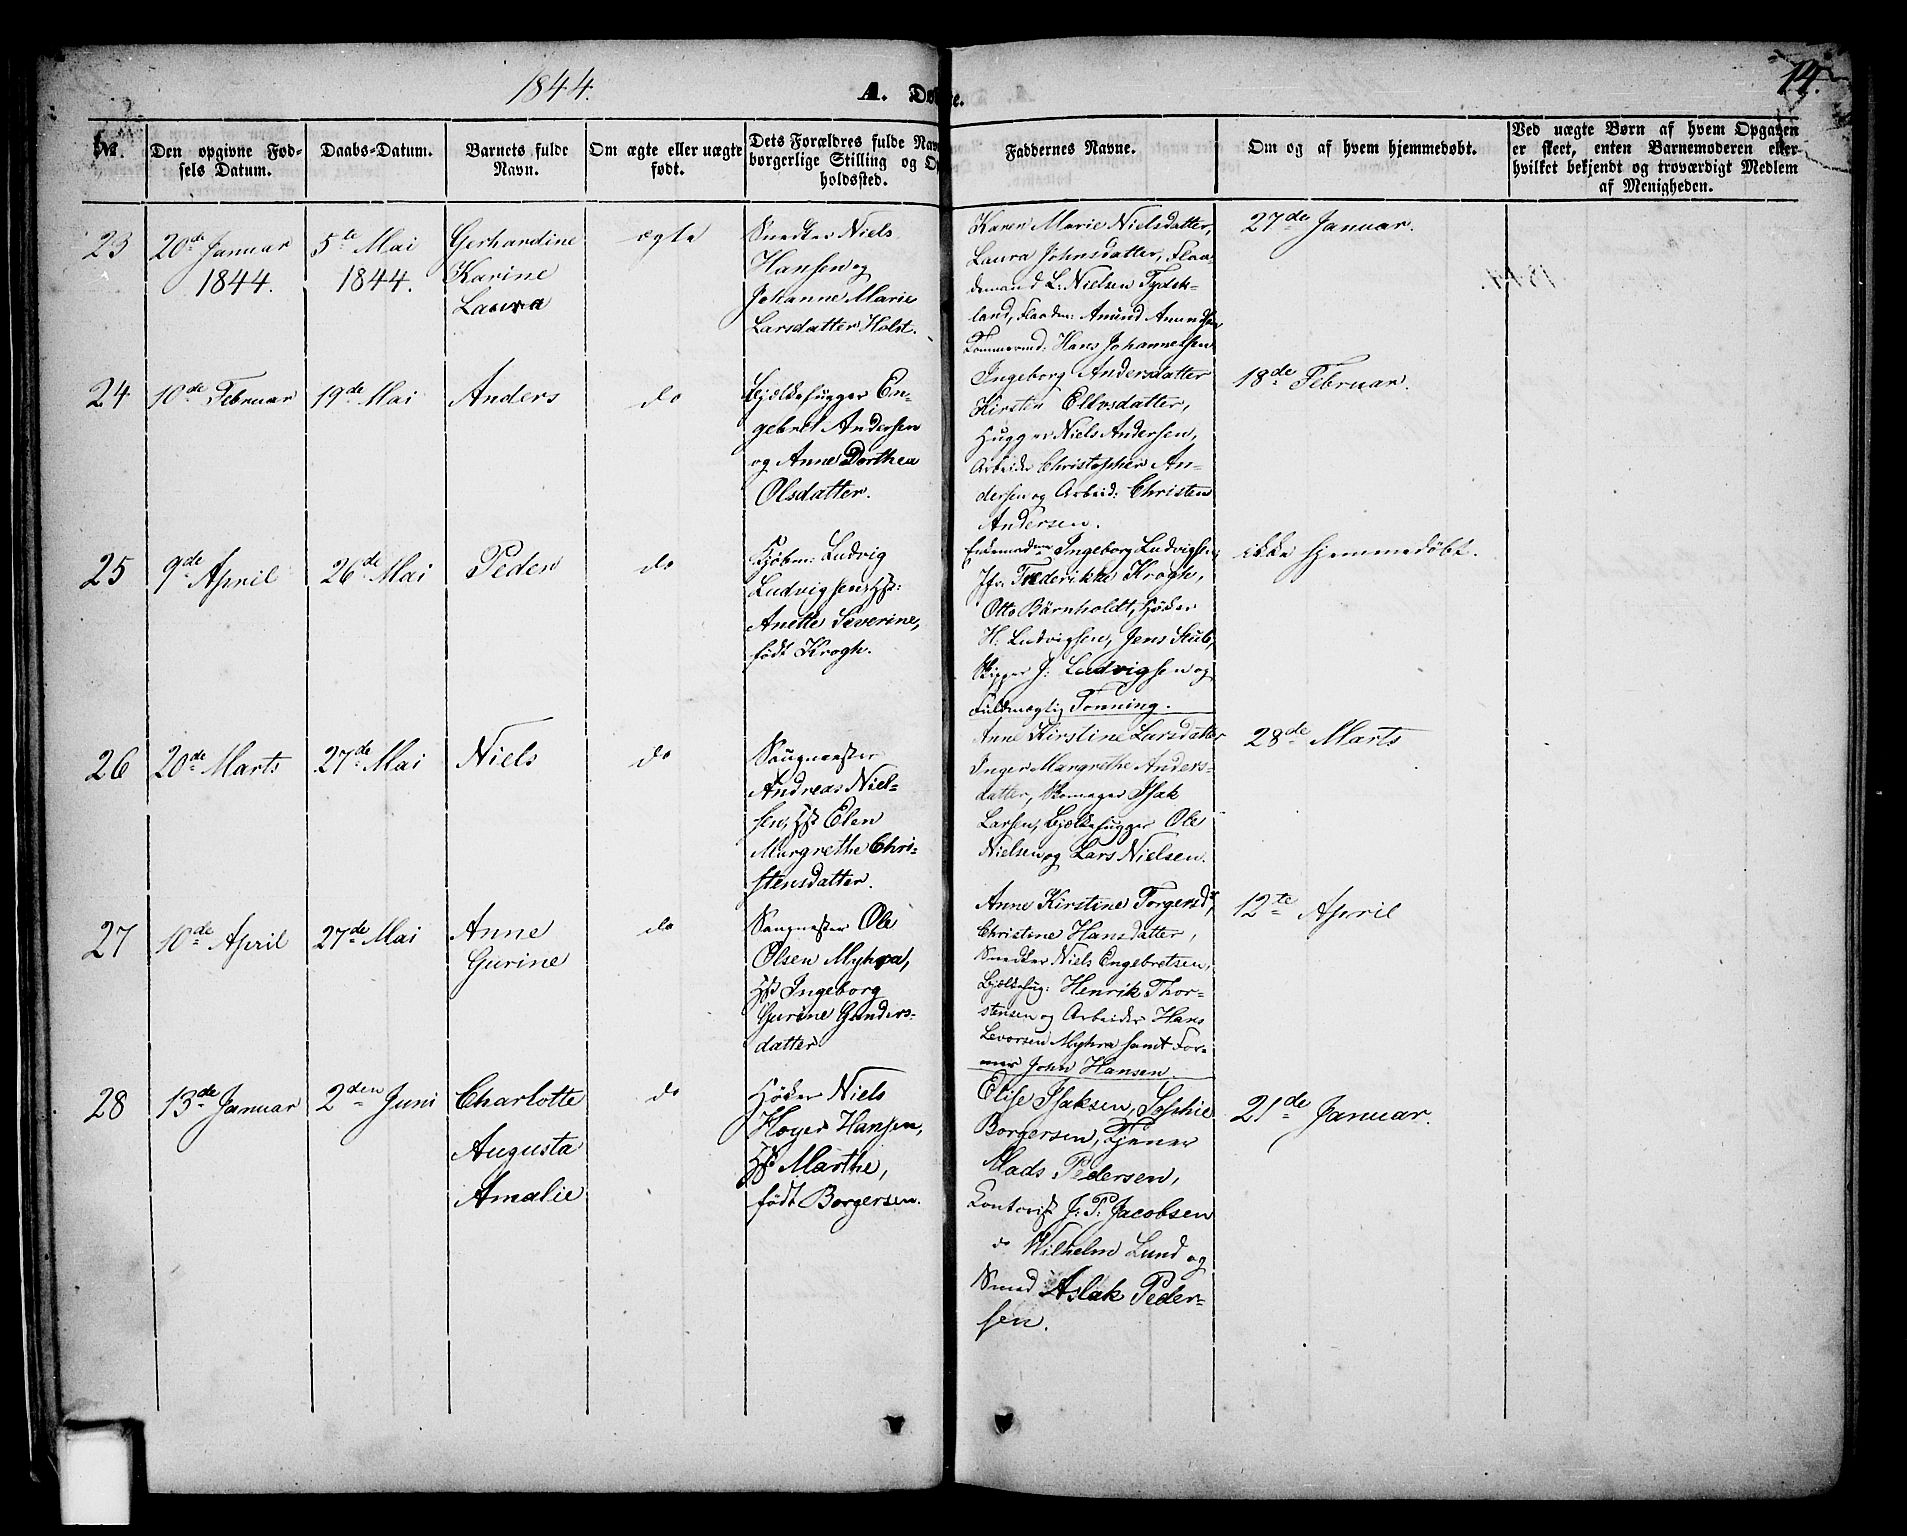 1844.
A. Døbte.
14.
№.
Den opgivne Fød-
sels Datum.
Daabs-Datum.
Barnets fulde
Navn.
Om ægte eller uægte
født.
Dets Forældres fulde Nav
borgerlige Stilling og Op
holdssted.
Faddernes Navne.
Om og af hvem hjemmedøbt.
Ved uægte Børn af hvem Opgaven
er skeet, enten Barnemoderen eller
hvilket bekjendt og troværdigt Medlem
af Menigheden.
23
20de Januar
1844.
5te Mai
1844.
Gerhardine
Karine
Laura
ægte
Snedker Niels
Hansen og
Johanne Marie
Larsdatter Holst.
Karen Marie Nielsdatter,
Laura Johnsdatter, Flaa-
demand L. Nielsen Tydsk-
land, Flaadm: Amund Amundsen
Tømmermd: Hans Johannesen
27de Januar.
24
10de Februar
19de Mai
Anders
do
Bjælkehugger En-
gebret Andersen
og Anne Dorthea
Olsdatter.
Ingeborg Andersdatter
Kirstin Ellvsdatter,
Hugger Niels Andersen,
Arbeider Christopher An-
dersen og Arbeid: Christen
Andersen.
18de Februar.
25
9de April
26de Mai
Peder
do
Kjøbm: Ludvig
Ludvigsen, Hst:
Anette Severine,
født Krogh.
Enkemadme Ingeborg Ludvigsen,
Jfr: Frederikke Krogh,
Otto Bärnholdt, Høker
H. Ludvigsen, Jens Stub,
Skipper J: Ludvigsen og
Fuldmægtig Tonning.
ikke hjemmedøbt.
26
20de Marts
27de Mai
Niels
do
Saugmester
Andreas Niel-
sen, Hst Elen
Margrethe Chri-
stensdatter.
Anne Kirstine Larsdatter
Inger Margrethe Anders-
datter, Skomager Isak
Larsen, Bjælkehugger Ole
Nielsen og Lars Nielsen.
28de Marts
27
10de April
27de Mai
Anne
Gurine
do
Saugmester Ole
Olsen Myhra,
Hst Ingeborg
Gurine Gunders-
datter
Anne Kirstine Torgersdr,
Christine Hansdatter,
Snedker Niels Engebretsen,
Bjælkehug: Henrik Thor-
stensen og Arbeider Hans
Levorsen Myhre samt For-
mer John Hansen.
12te April
28
13de Januar
2den Juni
Charlotte
Augusta
Amalie
do
Høker Niels
Høyer Hansen,
Hst Marthe,
født Borgersen.
Elise Isaksen, Sophie
Borgersen, Tjener
Mads Pedersen,
Contorist J. P. Jacobsen
do Wilhelm Lund og
Smed Aslak Peder-
sen.
21de Januar.